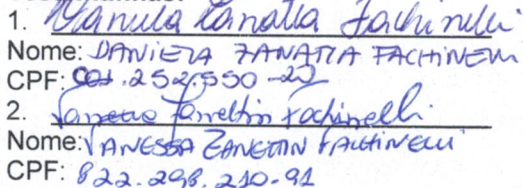 1. Daniela Zanatta Fachinelli
Nome: DANIELA ZANATTA FACHINELLI
CPF: .252.550-
2. Vanessa Zanettin Fachinelli
Nome: VANESSA ZANETTIN FACHINELLI
CPF: 822.298.210-91